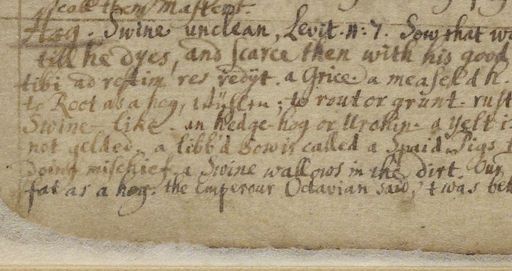 Hog. Swine unclean, Levit. 11. 7. Sow that wa
till he dyes, and scarce then with his good
tibi ad restim res redyt. a Grice. a measel'd h.
to Root as a hog, ; to rout or grunt. rust
Swine-like. an hedge-hog or Urchin. a yelt is
not gelded. a libb'd Sow is called a Spaid. Pigs
doing mischief. a Swine wallows in the dirt. Our
fat as a hog. the Emperour Octavian said, 't was bet